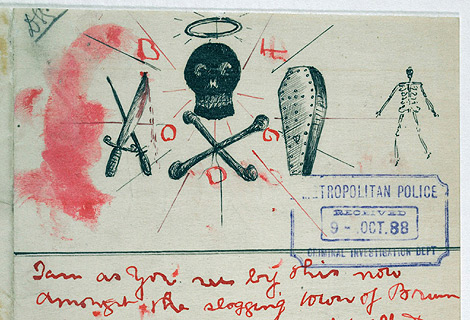 TROPOLITAN POLICE
RECEIVED
9 - OCT. 88
CRIMINAL INVESTIGATION DEPT
I am as You see by this now
amongst the slogging town of Brum